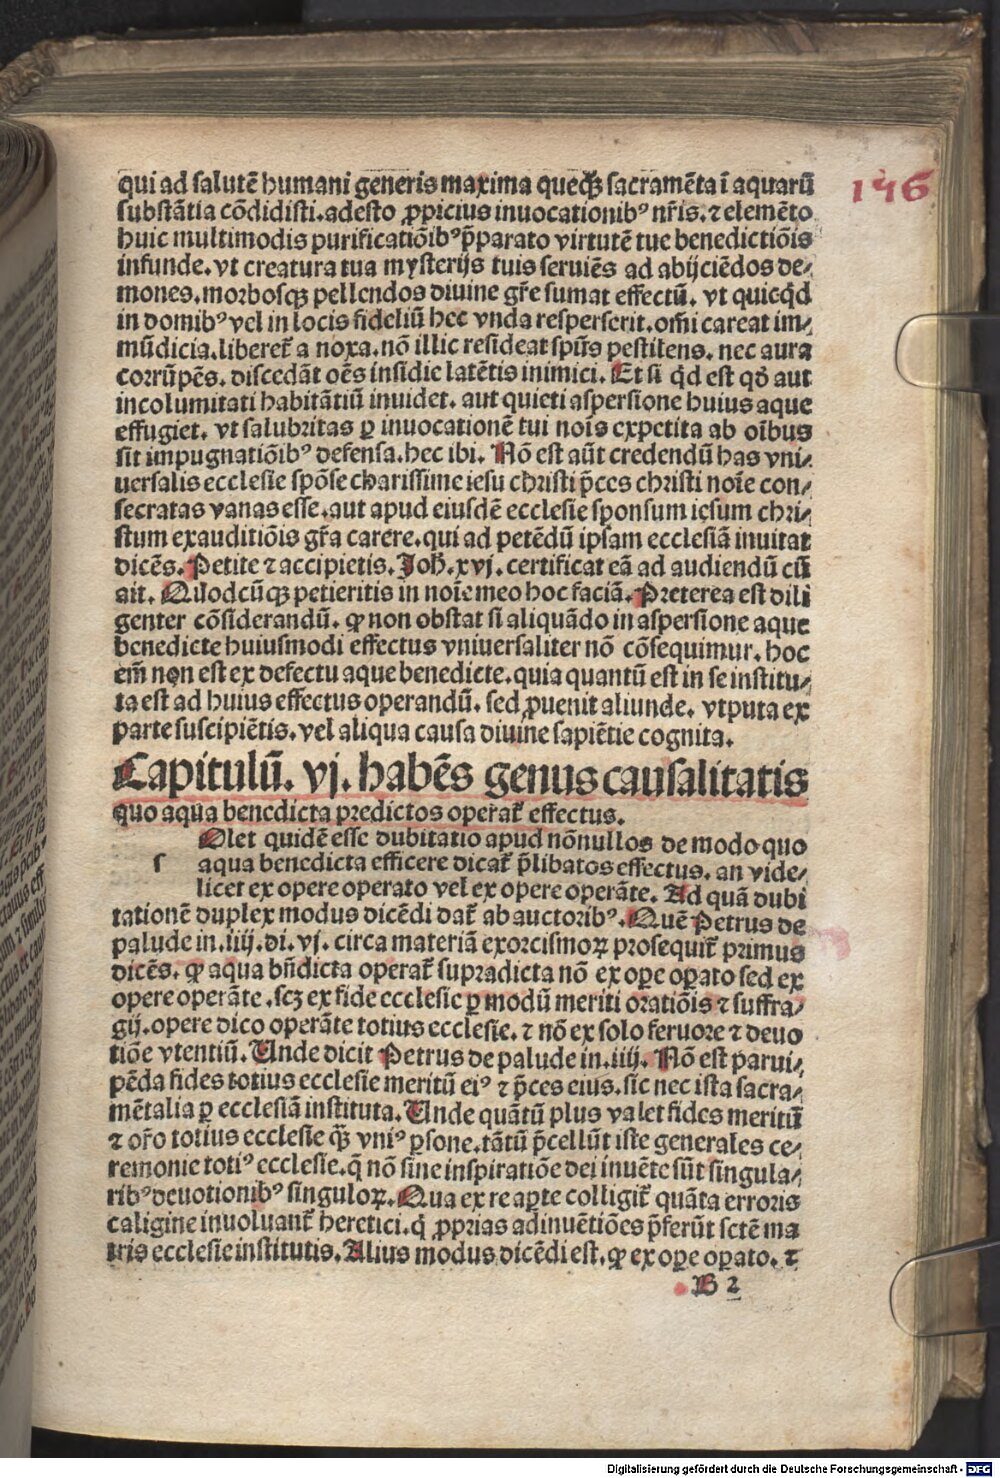 146
qui ad salutē humani generis maxima quecꝗ sacramēta ī aquarū
substātia cōdidisti.adesto ꝓpicius inuocationibꝰ nr̄is.⁊ elemēto
huic multimodis purificatiōibꝰ p̄parato virtutē tue benedictiōis
infunde.vt creatura tua mysterijs tuis seruiēs ad abijciēdos de⸗
mones.morbosqꝫ pellendos diuine gr̄e sumat effectū. vt quicq̄d
in domibꝰ vel in locis fideliū hec vnda resperserit.om̄i careat im⸗
mūdicia.liberet᷑ a noxa.nō illic resideat sp̄us pestilens. nec aura
corrūpēs. discedāt oēs insidie latētis inimici. Et si q̄d est qd̄ aut
incolumitati habitātiū inuidet. aut quieti aspersione huius aque
effugiet. vt salubritas ꝑ inuocationē tui nois expetita ab oībus
sit impugnatiōibꝰ defensa.hec ibi. Nō est aūt credendū has vni⸗
uersalis ecclesie spōse charissime iesu christi p̄ces christi noīe con⸗
secratas vanas esse.aut apud eiusdē ecclesie sponsum iesum chri⸗
stum exauditiōis gr̄a carere.qui ad petēdū ipsam ecclesiā inuitat
dicēs. Petite ⁊ accipietis. Joh̄. xvj. certificat eā ad audiendū cū
ait. Quodcūqꝫ petieritis in noīe meo hoc faciā. Preterea est dili
genter cōsiderandū. ꝙ non obstat si aliquādo in aspersione aque
benedicte huiusmodi effectus vniuersaliter nō cōsequimur. hoc
em̄ non est ex defectu aque benedicte.quia quantū est in se institu⸗
ta est ad huius effectus operandū. sed ꝓuenit aliunde. vtputa ex
parte suscipiētis.vel aliqua causa diuine sapiētie cognita.
Capitulū. vj. habēs genus causalitatis
quo aqua benedicta predictos operat᷑ effectus.
s Olet quidē esse dubitatio apud nōnullos de modo quo
aqua benedicta efficere dicat᷑ p̄libatos effectus. an vide⸗
licet ex opere operato vel ex opere operāte. Ad quā dubi
tationē duplex modus dicēdi dat᷑ ab auctoribꝰ. Quē Petrus de
palude in.iiij.di.vj. circa materiā exorcismoꝝ prosequit᷑ primus
dicēs. ꝙ aqua bn̄dicta operat᷑ supradicta nō ex oꝑe oꝑato sed ex
opere operāte.scꝫ ex fide ecclesie ꝑ modū meriti oratiōis ⁊ suffra⸗
gij.opere dico operāte totius ecclesie. ⁊ nō ex solo feruore ⁊ deuo
tiōe vtentiū. Unde dicit Petrus de palude in.iiij. Nō est parui⸗
pēda fides totius ecclesie meritū eiꝰ ⁊ p̄ces eius.sic nec ista sacra⸗
mētalia ꝑ ecclesiā instituta. Unde quātū plus valet fides meritū
⁊ or̄o totius ecclesie q̄ꝫ vniꝰ ꝑsone.tātū p̄cellūt iste generales ce⸗
remonie totiꝰ ecclesie.q̄ nō sine inspiratiōe dei inuēte sūt singula⸗
ribꝰ deuotionibꝰ singuloꝝ. Qua ex re aꝑte colligit᷑ quāta erroris
caligine inuoluant᷑ heretici.q̇ ꝓprias adinuētiōes p̄ferūt sctē ma
tris ecclesie institutis. Alius modus dicēdi est. ꝙ ex oꝑe oꝑato. ⁊
B 2
Digitalisierung gefördert durch die Deutsche Forschungsgemeinschaft - DFG